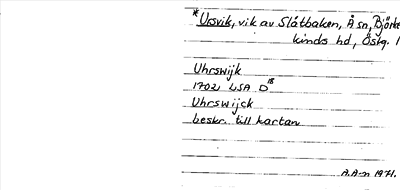 *Ursvik, vik av Slätbaken, Å sn, Björke
kinds hd, Östg. l
Uhrswijk
1702 LSA D18
Uhrswijck
beskr. till kartan
A.A-n 1971.